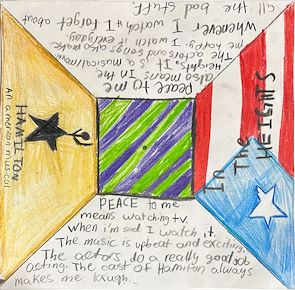 peace to me
also means In the
Heights. It is a musical/movie.
The actors and songs also make
me happy. I watch it everyday.
Whenever I watch it I forget about
all the bad stuff.
HAMILTON
An american musical
In The
HEIGHTS
PEACE to me
means watching tv.
when i'm sad I watch it.
The music is upbeat and exciting.
The actors do a really good job
acting. The cast of Hamilton always
makes me laugh.